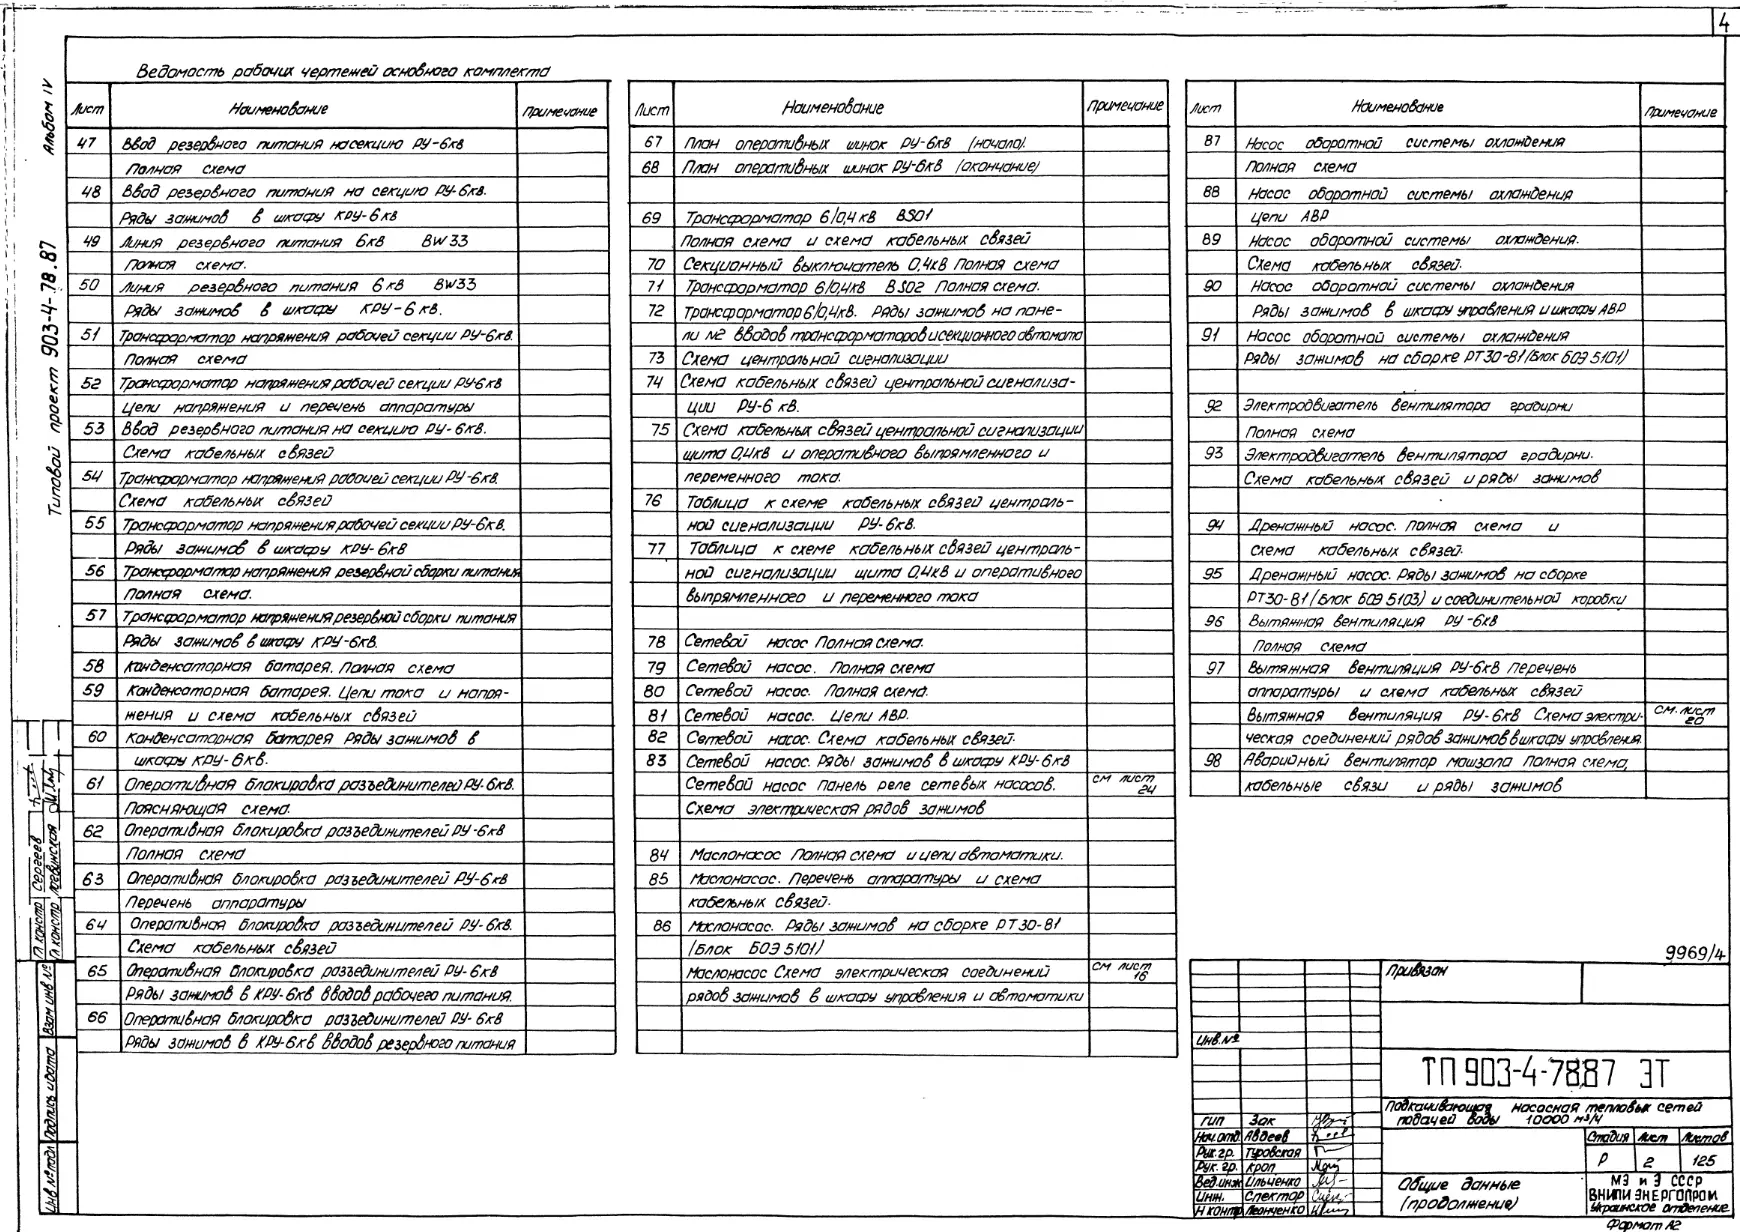 4
Альбом IV
Типовой проект 903-4-78.87
Ведомость рабочих чертежей основного комплекта
Лист Наименование Примечание
47 Ввод резервного питания на секцию РУ-6кВ
Полная схема
48 Ввод резервного питания на секцию РУ-6кВ.
Ряды зажимов в шкафу КРУ-6кВ
49 Линия резервного питания 6кВ BW33
Полная схема.
50 Линия резервного питания 6кВ BW33
Ряды зажимов в шкафу КРУ-6кВ.
51 Трансформатор напряжения рабочей секции РУ-6кВ.
Полная схема
52 Трансформатор напряжения рабочей секции РУ6кВ
Цепи напряжения и перечень аппаратуры
53 Ввод резервного питания на секцию РУ-6кВ.
Схема кабельных связей
54 Трансформатор напряжения рабочей секции РУ-6кВ.
Схема кабельных связей
55 Трансформатор напряжения рабочей секции РУ-6кВ.
Ряды зажимов в шкафу КРУ-6кВ
56 Трансформатор напряжения резервной сборки питания
Полная схема.
57 Трансформатор напряжения резервной сборки питания
Ряды зажимов в шкафу КРУ-6кВ.
58 Конденсаторная батарея. Полная схема
59 Конденсаторная батарея. Цепи тока и напря-
жения и схема кабельных связей
60 Конденсаторная батарея Ряды зажимов в
шкафу КРУ-6кВ.
61 Оперативная блокировка разъединителей РУ-6кВ.
Поясняющая схема.
62 Оперативная блокировка разъединителей РУ-6кВ
Полная схема
63 Оперативная блокировка разъединителей РУ-6кВ
Перечень аппаратуры
64 Оперативная блокировка разъединителей РУ-6кВ.
Схема кабельных связей
65 Оперативная блокировка разъединителей РУ-6кВ
Ряды зажимов в КРУ-6кВ вводов рабочего питания.
66 Оперативная блокировка разъединителей РУ-6кВ
Ряды зажимов в КРУ-6кВ вводов резервного питания
Лист Наименование Примечание
67 План оперативных шинок РУ-6кВ (начало).
68 План оперативных шинок РУ-6кВ (окончание)
69 Трансформатор 6/0,4кВ BS01
Полная схема и схема кабельных связей
70 Секционный выключатель 0,4кВ Полная схема
71 Трансформатор 6/0,4кВ BS02 Полная схема.
72 Трансформатор 6/0,4кВ. Ряды зажимов на пане-
ли №2 вводов трансформаторов и секционного автомата
73 Схема центральной сигнализации
74 Схема кабельных связей центральной сигнализа-
ции РУ-6кВ.
75 Схема кабельных связей центральной сигнализации
щита 0,4кВ и оперативного выпрямленного и
переменного тока.
76 Таблица к схеме кабельных связей централь-
ной сигнализации РУ-6кВ.
77 Таблица к схеме кабельных связей централь-
ной сигнализации щита 0,4кВ и оперативного
выпрямленного и переменного тока
78 Сетевой насос Полная схема.
79 Сетевой насос. Полная схема
80 Сетевой насос. Полная схема.
81 Сетевой насос. Цепи АВР.
82 Сетевой насос. Схема кабельных связей.
83 Сетевой насос. Ряды зажимов в шкафу КРУ-6кВ
Сетевой насос Панель реле сетевых насосов. см лист 24
Схема электрическая рядов зажимов
84 Маслонасос Полная схема и цепи автоматики.
85 Маслонасос. Перечень аппаратуры и схема
кабельных связей.
86 Маслонасос. Ряды зажимов на сборке РТ30-81
(Блок БОЭ 5101)
Маслонасос Схема электрическая соединений см лист 16
рядов зажимов в шкафу управления и автоматики
Лист Наименование Примечание
87 Насос оборотной системы охлаждения
Полная схема
88 Насос оборотной системы охлаждения
Цепи АВР
89 Насос оборотной системы охлаждения.
Схема кабельных связей.
90 Насос оборотной системы охлаждения
Ряды зажимов в шкафу управления и шкафу АВР
91 Насос оборотной системы охлаждения
Ряды зажимов на сборке РТ30-81 (Блок БОЭ 5101)
92 Электродвигатель вентилятора градирни
Полная схема
93 Электродвигатель вентилятора градирни.
Схема кабельных связей и ряды зажимов
94 Дренажный насос. Полная схема и
схема кабельных связей.
95 Дренажный насос. Ряды зажимов на сборке
РТ30-81 (Блок БОЭ 5103) и соединительной коробки
96 Вытяжная вентиляция РУ-6кВ
Полная схема
97 Вытяжная вентиляция РУ-6кВ Перечень
аппаратуры и схема кабельных связей
Вытяжная вентиляция РУ-6кВ Схема электри- см. лист 20
ческая соединений рядов зажимов в шкафу управления.
98 Аварийный вентилятор машзала Полная схема,
кабельные связи и ряды зажимов
Л. констр Сергеев
Л. констр Левинская
Взам инв №
Подпись и дата
Инв № подл
9969/4
Привязан
Инв.№
ТП 903-4-78.87 ЭТ
Подкачивающая насосная тепловых сетей
подачей воды 10000 м³/ч
ГИП Зак
Нач.отд. Авдеев
Рук.гр. Туровская
Рук.гр. Кроп
Вед.инж Ильченко
Инж. Спектор
Н контр Леонченко
Стадия Лист Листов
Р 2 125
Общие данные
(продолжение)
МЭ и Э СССР
ВНИПИЭНЕРГОПРОМ
Украинское отделение
Формат А2